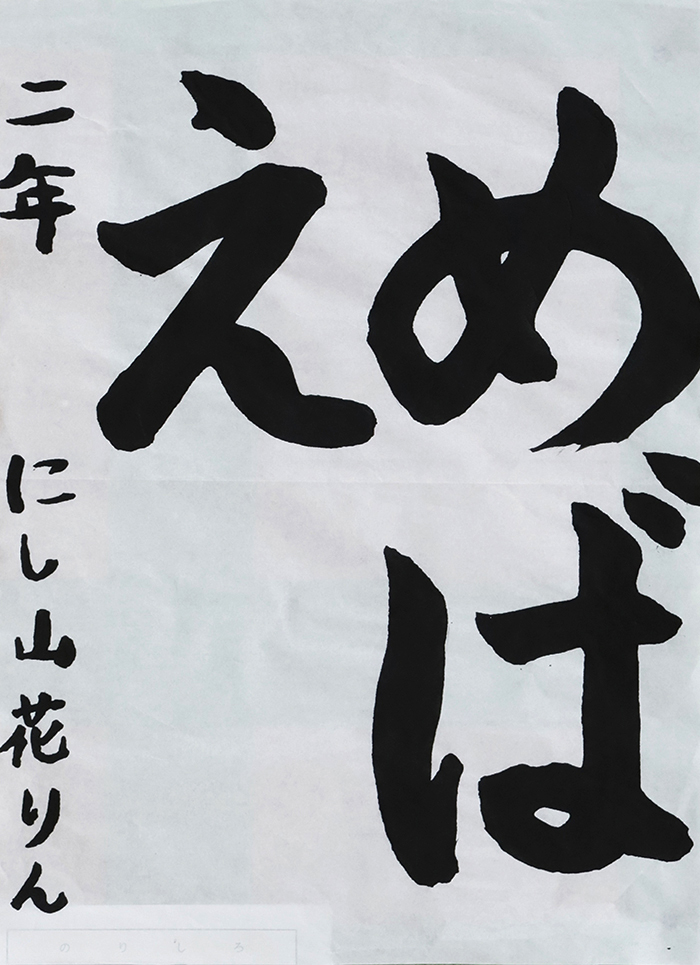 めば
え
二年 にし山花りん
のりしろ